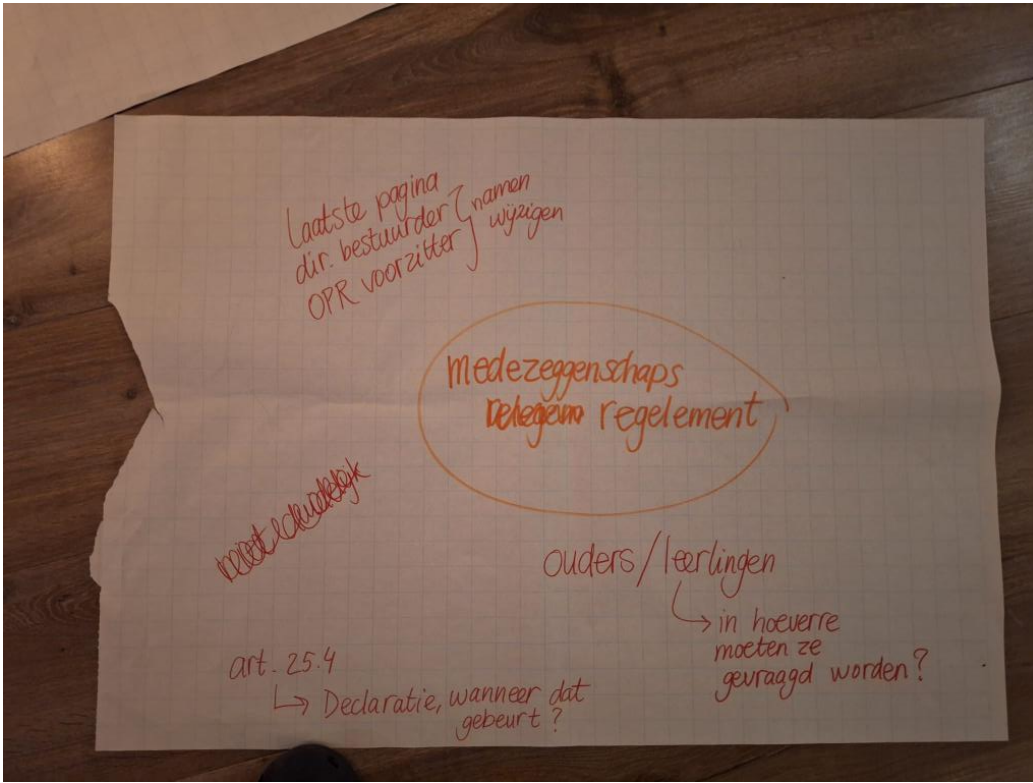 Laatste pagina
dir. bestuurder
OPR voorzitter
namen
wijzigen
medezeggenschaps
regelement
ouders/leerlingen
in hoeverre
moeten ze
gevraagd worden?
art. 25.4
Declaratie, wanneer dat
gebeurt?